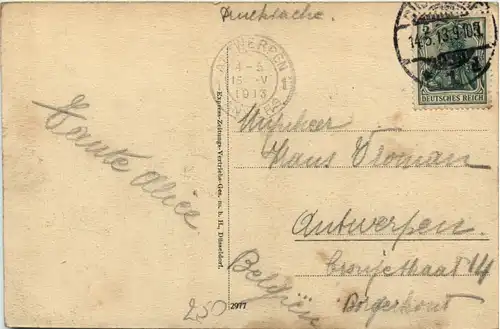 Drucksache.
14.5.13.9-10 V
DEUTSCHES REICH
ANTWERPEN
4-5
15-V
1913
1
ANVERS
Tante Alice
Express-Zeitungs-Vertriebs-Ges. m. b. H., Düsseldorf.
Mijnheer
Hans Vloman
Antwerpen.
Cronjestraat 14
Borgerhout
Belgien
250
2977